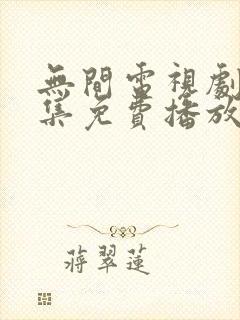 無間電視劇
集免費播放
蔣翠蓮